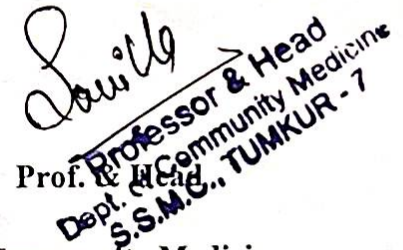 Professor & Head
Dept. of Community Medicine
S.S.M.C., TUMKUR - 7
Prof. & Head